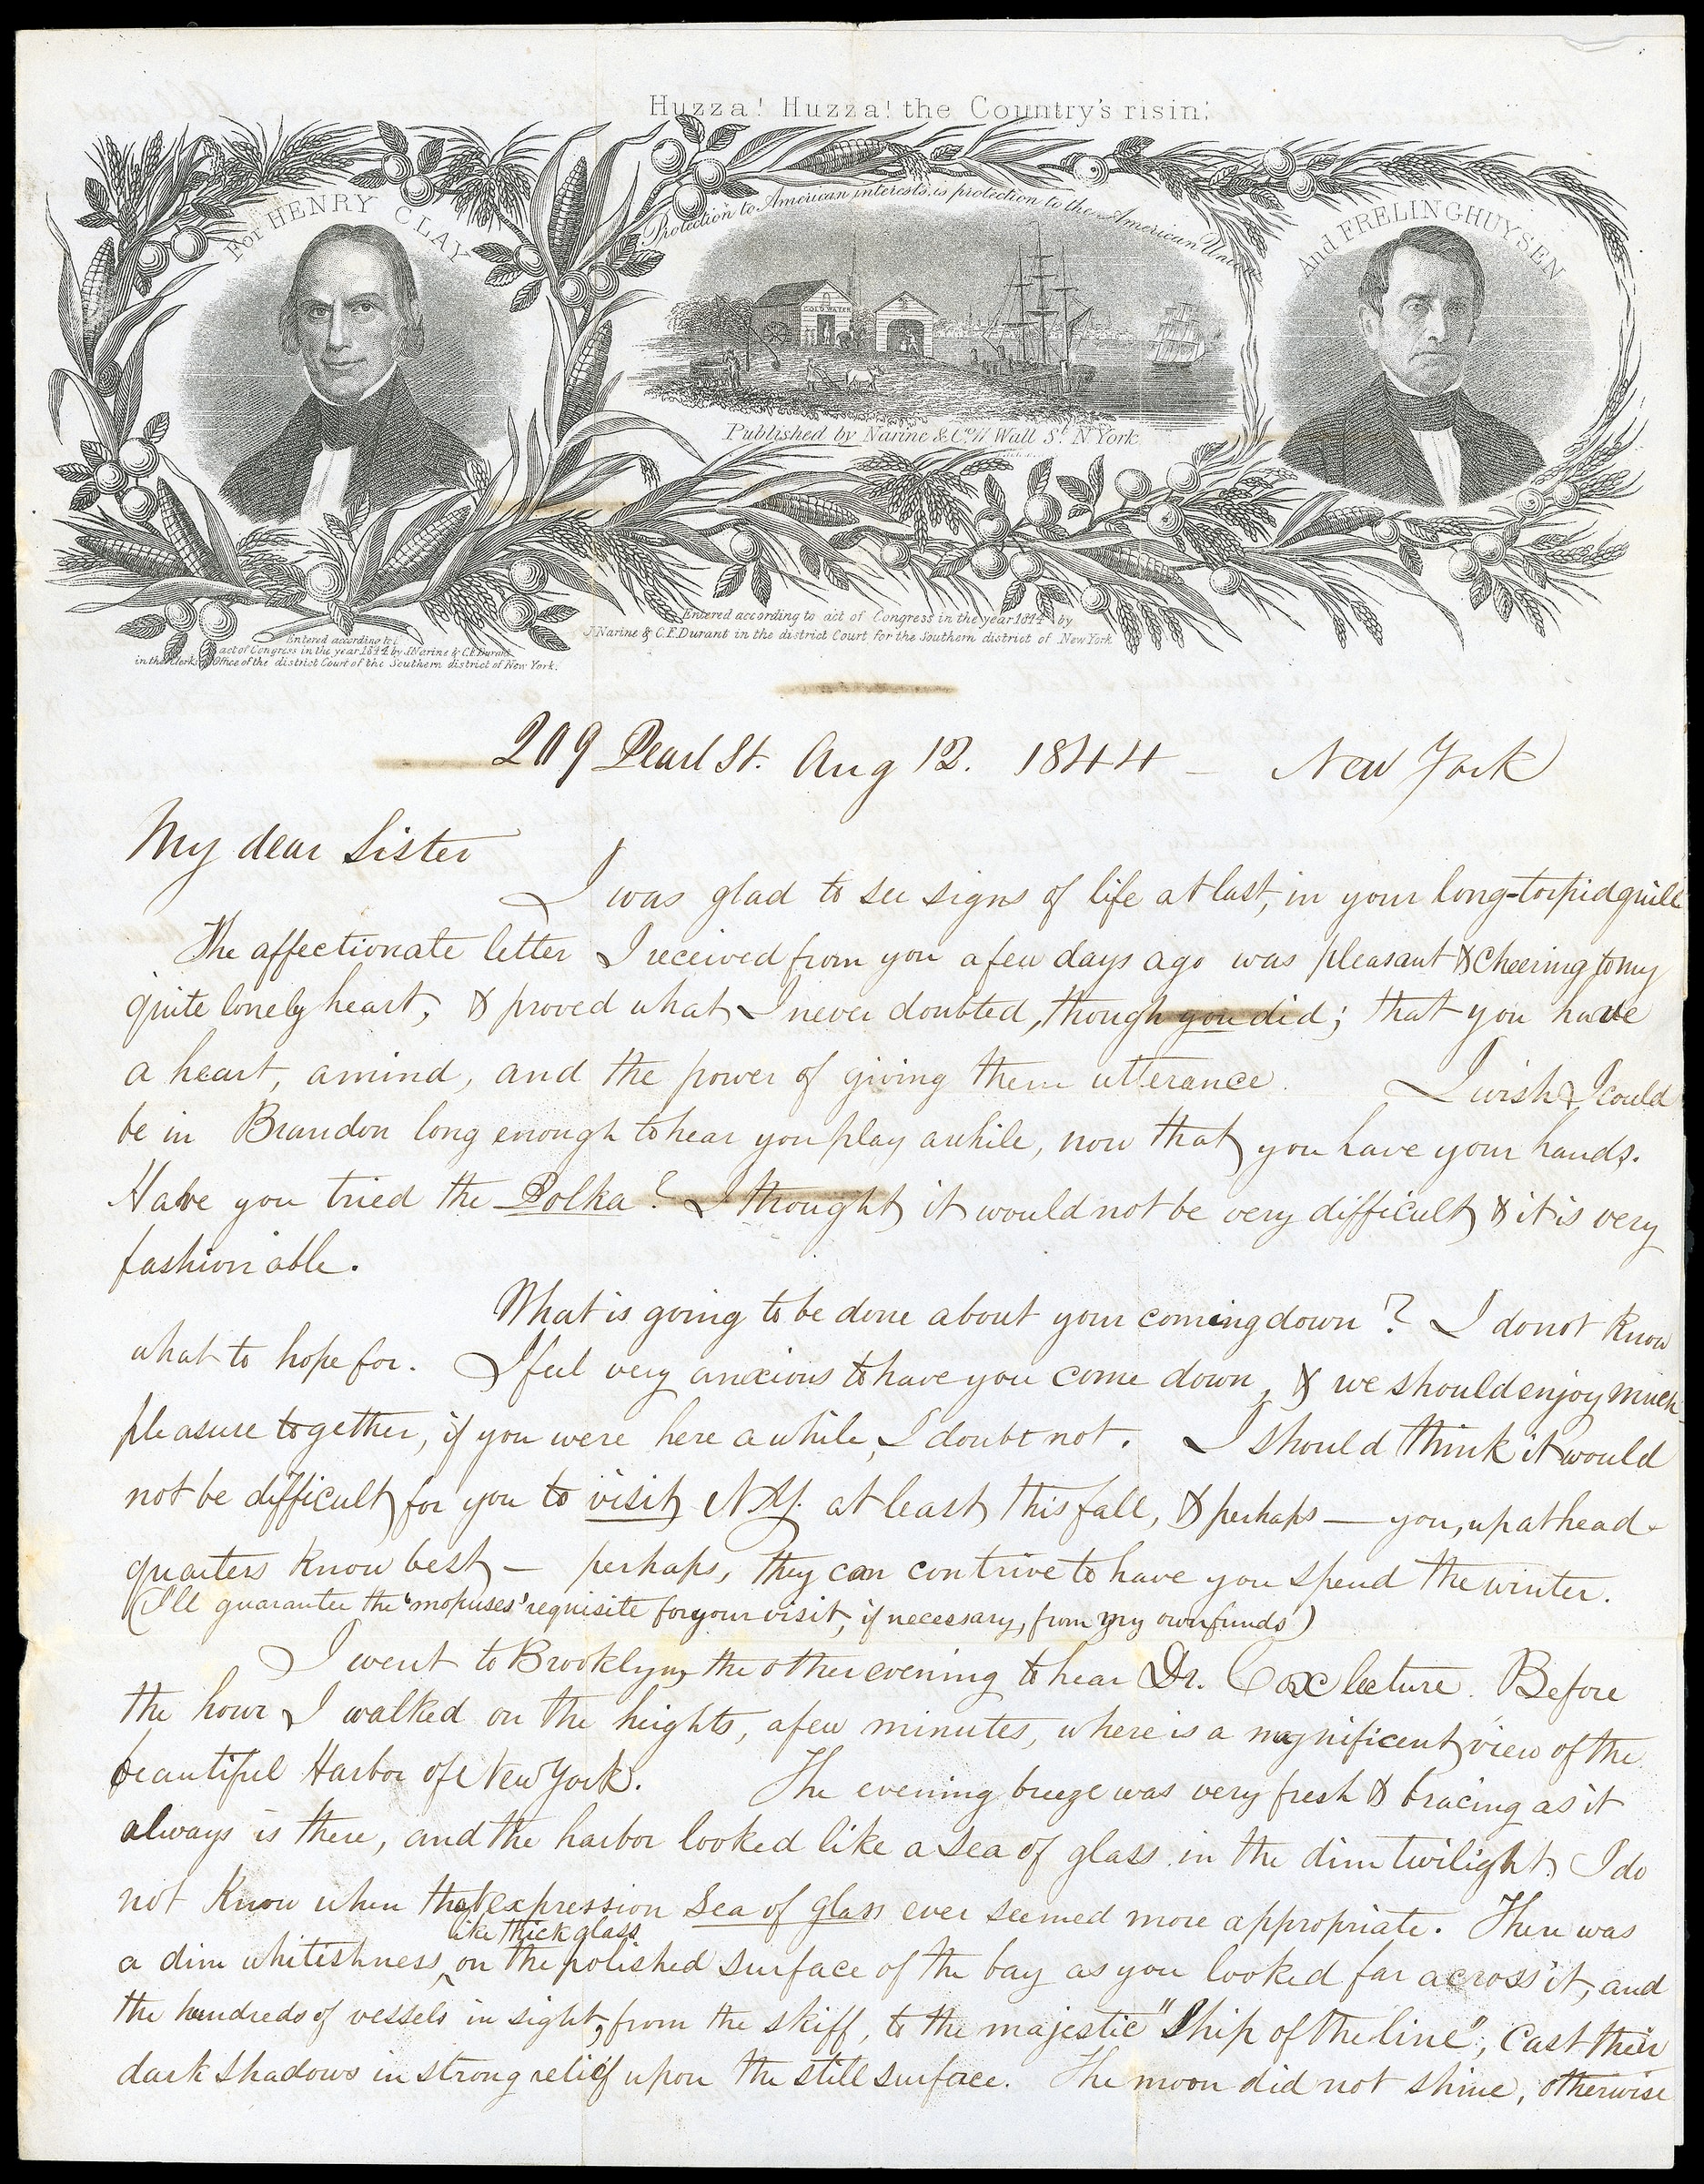 Huzza! Huzza! the Country's risin;
For HENRY CLAY
Protection to American interests, is protection to the American Union
And FRELINGHUYSEN
COLD WATER
Published by Narine & Co. 11 Wall St. N York
Entered according to act of Congress in the year 1844 by
J Narine & C.F. Durant in the district Court for the Southern district of New York
Entered according to
act of Congress in the year 1844 by J Narine & C.F. Durant
in the Clerks Office of the district Court of the Southern district of New York.
209 Pearl St. Aug 12. 1844 – New York
My dear Sister
I was glad to see signs of life at last, in your long-torpid quill
The affectionate letter I received from you a few days ago was pleasant & cheering to my
quite lonely heart, & proved what I never doubted, though you did; that you have
a heart, a mind, and the power of giving them utterance. I wish I could
be in Brandon long enough to hear you play awhile, now that you have your hands.
Have you tried the Polka? I thought it would not be very difficult & it is very
fashionable.
What is going to be done about your coming down? I do not know
what to hope for. I feel very anxious to have you come down, & we should enjoy much
pleasure together, if you were here awhile, I doubt not. I should think it would
not be difficult for you to visit N.Y. at least this fall, & perhaps — you, up at head-
quarters know best — perhaps, they can contrive to have you spend the winter.
(I'll guarantee the 'mopuses' requisite for your visit, if necessary, from my own funds)
I went to Brooklyn, the other evening to hear Dr. Cox lecture. Before
the hour I walked on the heights, a few minutes, where is a magnificent view of the
beautiful Harbor of New York. The evening breeze was very fresh & bracing as it
always is there, and the harbor looked like a sea of glass in the dim twilight. I do
not know when that expression Sea of glass ever seemed more appropriate. There was
like thick glass
a dim whitishness, on the polished surface of the bay as you looked far across it, and
the hundreds of vessels in sight, from the skiff, to the majestic "Ship of the line", cast their
dark shadows in strong relief upon the still surface. The moon did not shine, otherwise